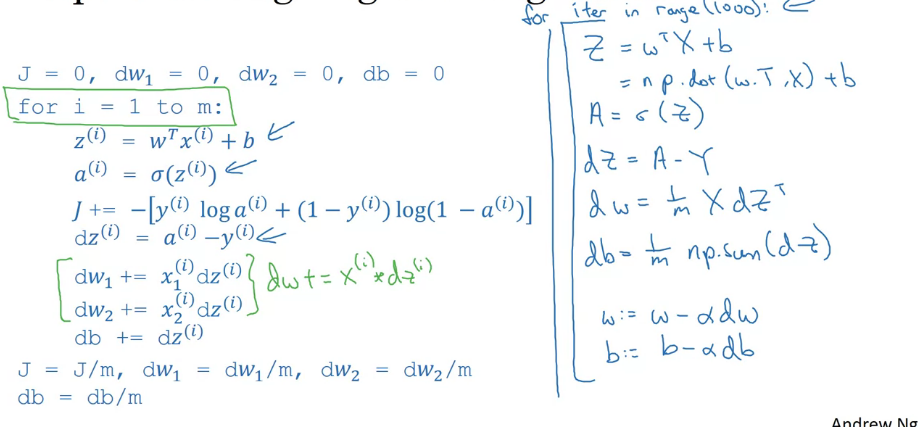 J = 0, dw₁ = 0, dw₂ = 0, db = 0
for i = 1 to m:
z⁽ⁱ⁾ = wᵀx⁽ⁱ⁾ + b
a⁽ⁱ⁾ = σ(z⁽ⁱ⁾)
J += −[y⁽ⁱ⁾ log a⁽ⁱ⁾ + (1 − y⁽ⁱ⁾) log(1 − a⁽ⁱ⁾)]
dz⁽ⁱ⁾ = a⁽ⁱ⁾ − y⁽ⁱ⁾
dw₁ += x₁⁽ⁱ⁾dz⁽ⁱ⁾
dw₂ += x₂⁽ⁱ⁾dz⁽ⁱ⁾
dw += x⁽ⁱ⁾ * dz⁽ⁱ⁾
db += dz⁽ⁱ⁾
J = J/m, dw₁ = dw₁/m, dw₂ = dw₂/m
db = db/m
for iter in range(1000):
Z = wᵀX + b
= np.dot(w.T, X) + b
A = σ(Z)
dZ = A − Y
dw = 1/m X dZᵀ
db = 1/m np.sum(dZ)
w := w − αdw
b := b − αdb
Andrew Ng